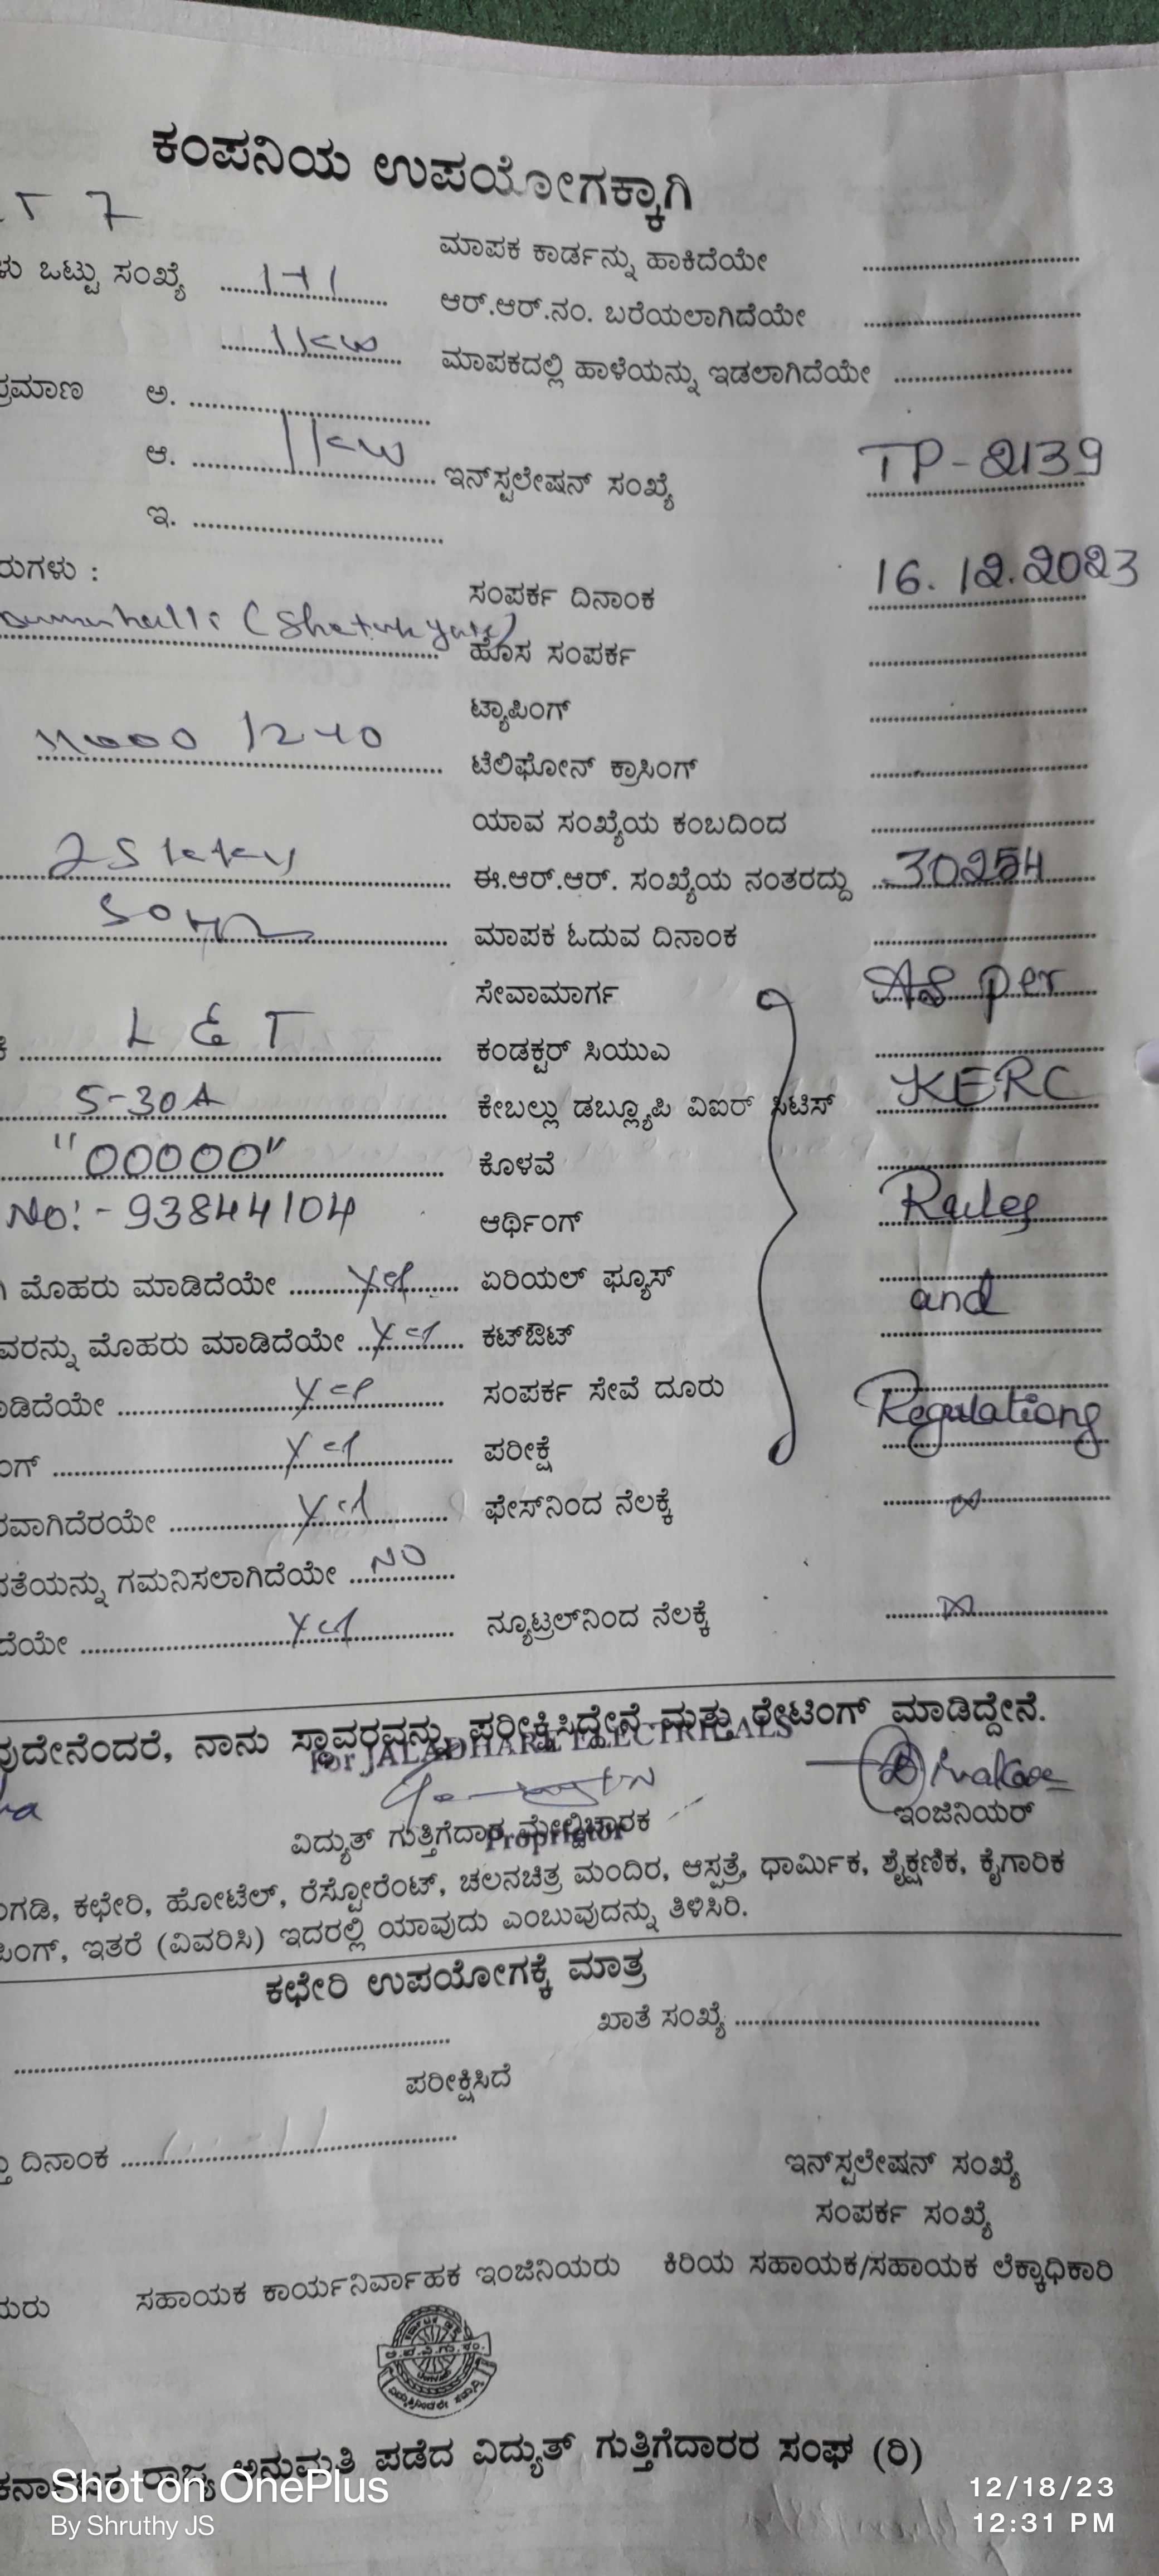 ಕಂಪನಿಯ ಉಪಯೋಗಕ್ಕಾಗಿ
7
ಮಾಪಕ ಕಾರ್ಡನ್ನು ಹಾಕಿದೆಯೇ
ಒಟ್ಟು ಸಂಖ್ಯೆ 1+1
ಆರ್.ಆರ್.ನಂ. ಬರೆಯಲಾಗಿದೆಯೇ
1 kw
ಮಾಪಕದಲ್ಲಿ ಹಾಳೆಯನ್ನು ಇಡಲಾಗಿದೆಯೇ
ಅ.
ಆ. 1 kw
ಇನ್‌ಸ್ಟಲೇಷನ್ ಸಂಖ್ಯೆ TP-2139
ಇ.
ಸಂಪರ್ಕ ದಿನಾಂಕ 16.12.2023
ಹೊಸ ಸಂಪರ್ಕ
ಟ್ಯಾಪಿಂಗ್
11000 / 240
ಟೆಲಿಫೋನ್ ಕ್ರಾಸಿಂಗ್
ಯಾವ ಸಂಖ್ಯೆಯ ಕಂಬದಿಂದ
25
ಈ.ಆರ್.ಆರ್. ಸಂಖ್ಯೆಯ ನಂತರದ್ದು 30254
ಮಾಪಕ ಓದುವ ದಿನಾಂಕ
ಸೇವಾಮಾರ್ಗ As per
L & T
ಕಂಡಕ್ಟರ್ ಸಿಯುಎ
5-30A
ಕೇಬಲ್ಲು ಡಬ್ಲ್ಯೂಪಿ ವಿಐರ್ ಸಿಟಿಸ್ KERC
"00000"
ಕೊಳವೆ
No:- 93844104
ಆರ್ಥಿಂಗ್ Rules
ಮೊಹರು ಮಾಡಿದೆಯೇ Yes
ಏರಿಯಲ್ ಫ್ಯೂಸ್ and
ಮೊಹರು ಮಾಡಿದೆಯೇ Yes
ಕಟ್‌ಔಟ್
Yes
ಸಂಪರ್ಕ ಸೇವೆ ದೂರು Regulations
Yes
ಪರೀಕ್ಷೆ
Yes
ಫೇಸ್‌ನಿಂದ ನೆಲಕ್ಕೆ
ಗಮನಿಸಲಾಗಿದೆಯೇ NO
Yes
ನ್ಯೂಟ್ರಲ್‌ನಿಂದ ನೆಲಕ್ಕೆ
ನಾನು ಸ್ಥಾವರವನ್ನು ಪರೀಕ್ಷಿಸಿದ್ದೇನೆ ಮತ್ತು ರೇಟಿಂಗ್ ಮಾಡಿದ್ದೇನೆ.
For JALADHARE ELECTRICALS
ವಿದ್ಯುತ್ ಗುತ್ತಿಗೆದಾರ ಮೇಲ್ವಿಚಾರಕ
Proprietor
ಇಂಜಿನಿಯರ್
ಕಛೇರಿ, ಹೋಟೆಲ್, ರೆಸ್ಟೋರೆಂಟ್, ಚಲನಚಿತ್ರ ಮಂದಿರ, ಆಸ್ಪತ್ರೆ, ಧಾರ್ಮಿಕ, ಶೈಕ್ಷಣಿಕ, ಕೈಗಾರಿಕ
ಇತರೆ (ವಿವರಿಸಿ) ಇದರಲ್ಲಿ ಯಾವುದು ಎಂಬುವುದನ್ನು ತಿಳಿಸಿರಿ.
ಕಛೇರಿ ಉಪಯೋಗಕ್ಕೆ ಮಾತ್ರ
ಖಾತೆ ಸಂಖ್ಯೆ
ಪರೀಕ್ಷಿಸಿದೆ
ದಿನಾಂಕ
ಇನ್‌ಸ್ಟಲೇಷನ್ ಸಂಖ್ಯೆ
ಸಂಪರ್ಕ ಸಂಖ್ಯೆ
ಸಹಾಯಕ ಕಾರ್ಯನಿರ್ವಾಹಕ ಇಂಜಿನಿಯರು ಕಿರಿಯ ಸಹಾಯಕ/ಸಹಾಯಕ ಲೆಕ್ಕಾಧಿಕಾರಿ
ಕರ್ನಾಟಕ ರಾಜ್ಯ ಅನುಮತಿ ಪಡೆದ ವಿದ್ಯುತ್ ಗುತ್ತಿಗೆದಾರರ ಸಂಘ (ರಿ)
Shot on OnePlus
By Shruthy JS
12/18/23
12:31 PM